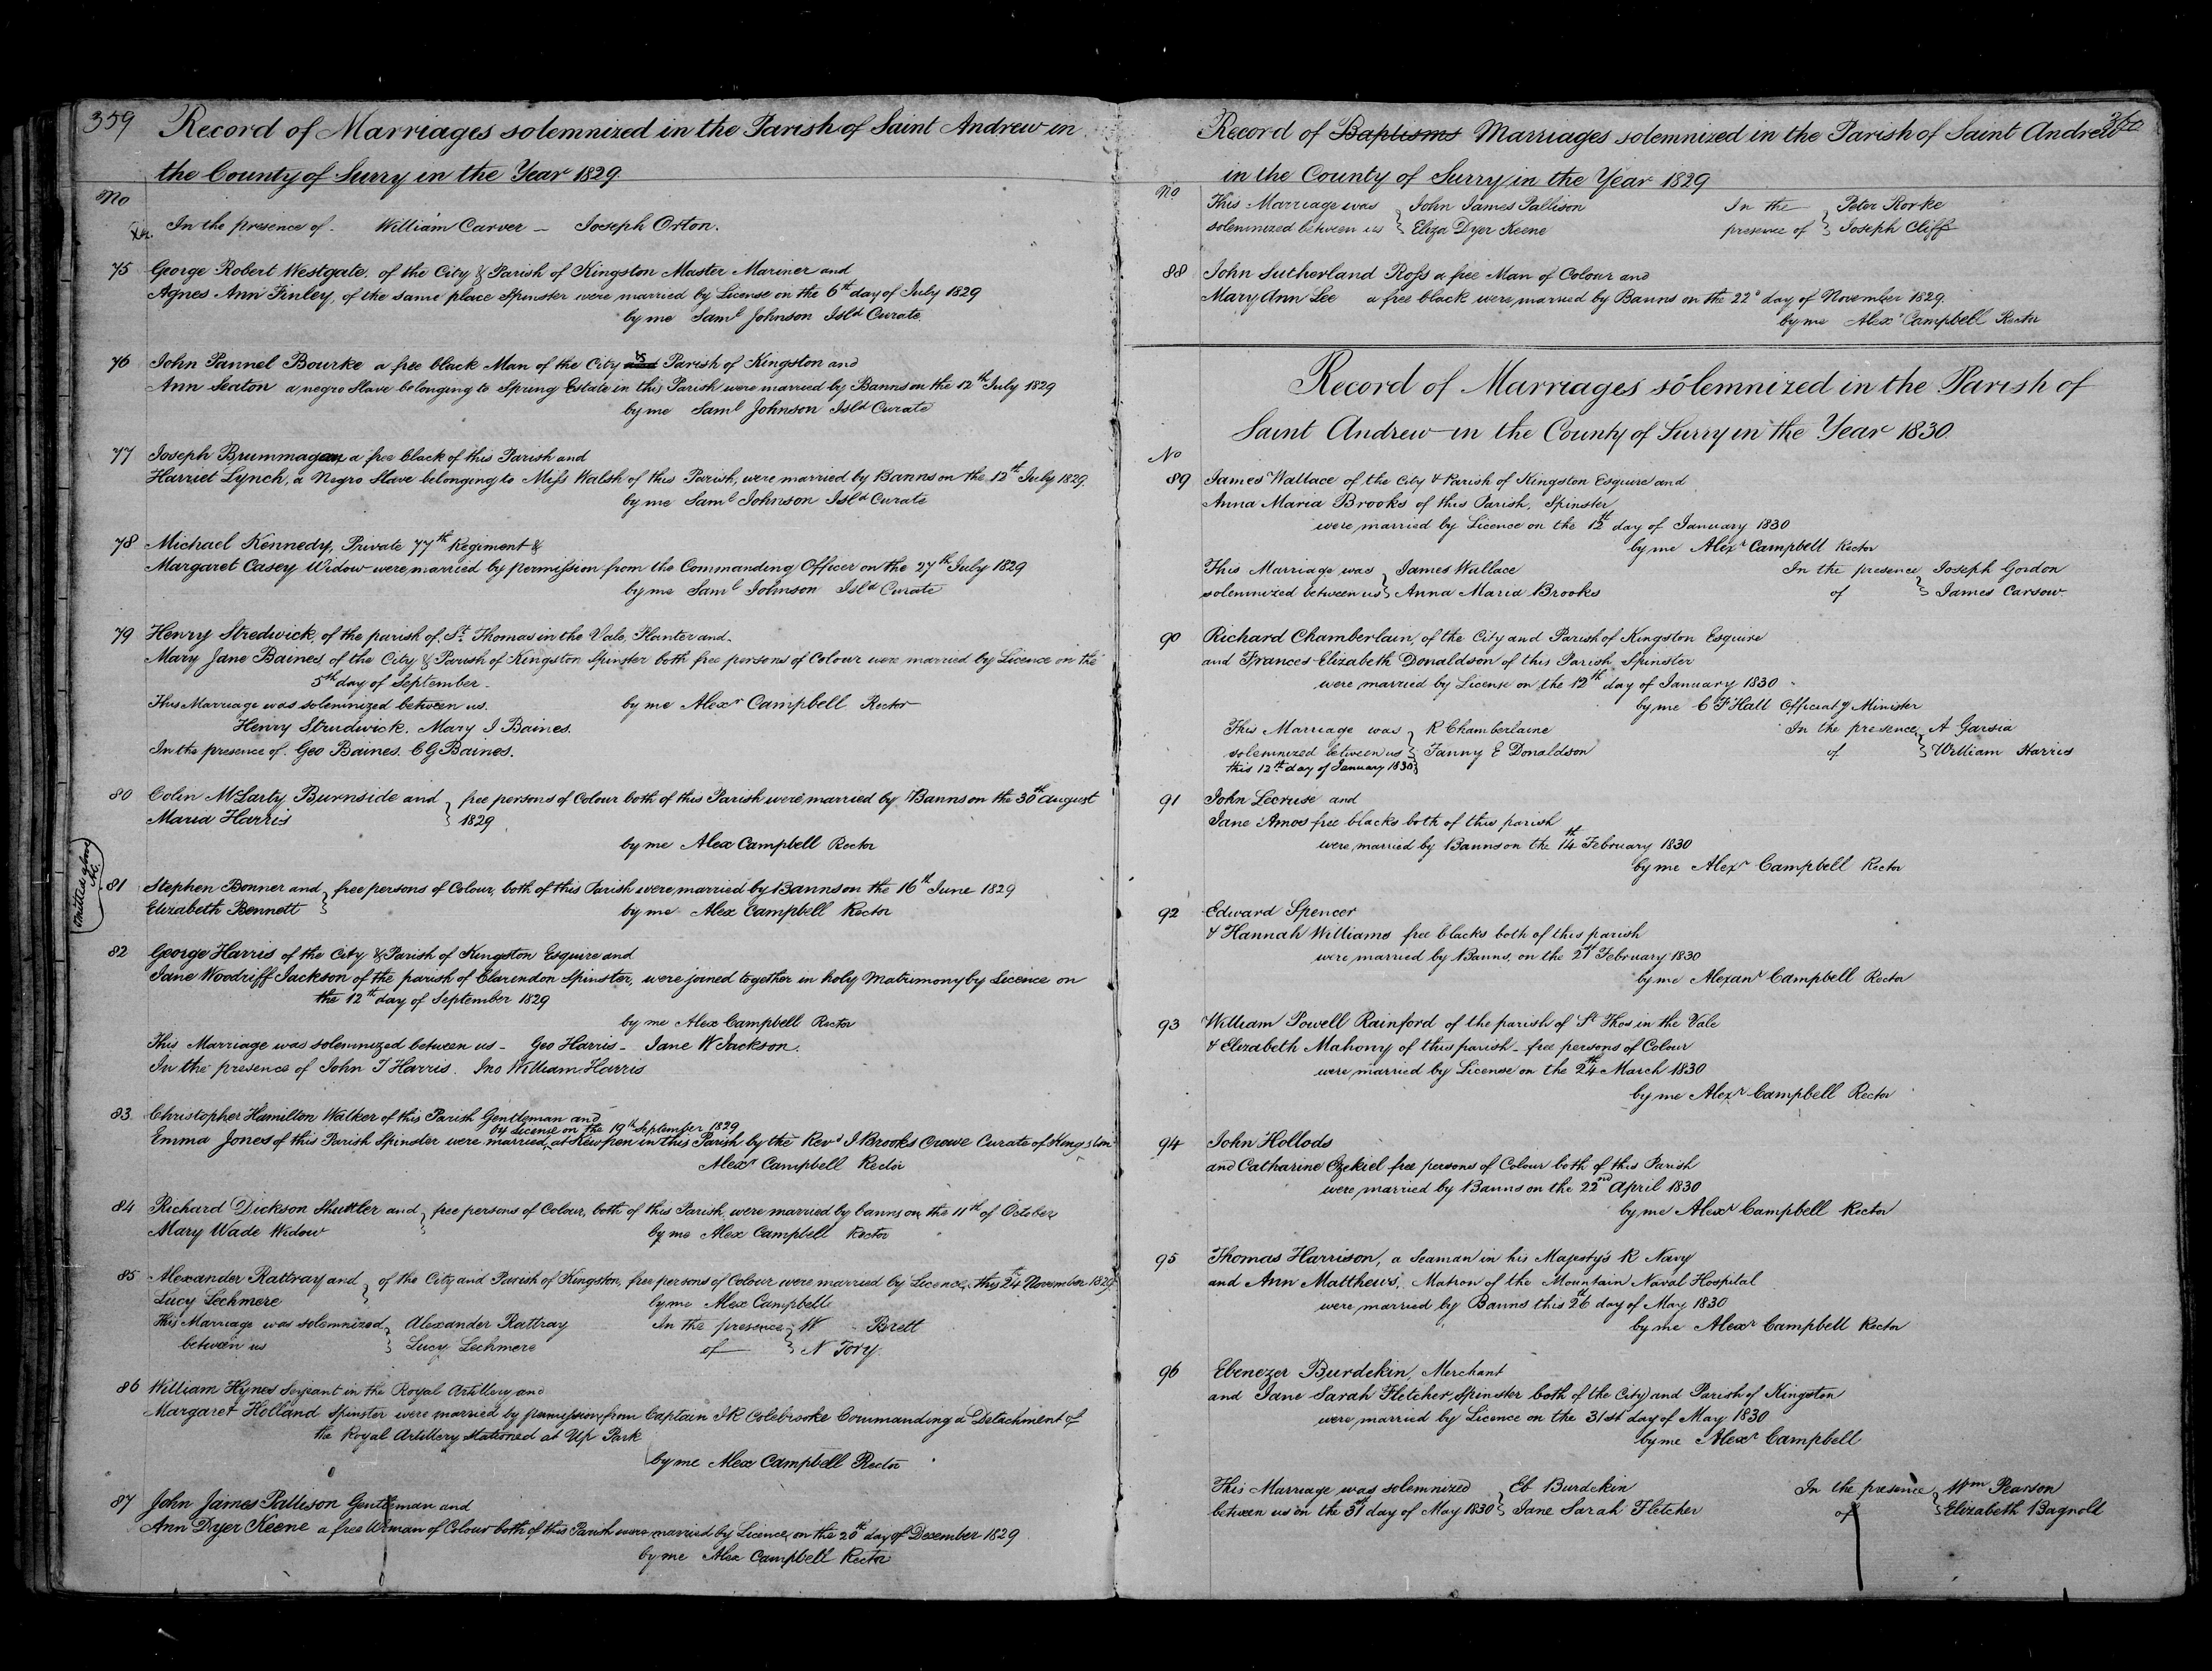 359
Record of Marriages solemnized in the Parish of Saint Andrew in
the County of Surry in the Year 1829.
No
In the presence of. William Carver – Joseph Orton.
75 George Robert Westgate, of the City & Parish of Kingston Master Mariner and
Agnes Ann Finley, of the same place Spinster were married by License on the 6th day of July 1829
by me Saml Johnson Isld Curate.
76 John Pannel Bourke a free black Man of the City & Parish of Kingston and
Ann Seaton a negro Slave belonging to Spring Estate in this Parish were married by Banns on the 12th July 1829
by me Saml Johnson Isld Curate
77 Joseph Brummagem a free black of this Parish and
Harriet Lynch, a Negro Slave belonging to Miss Walsh of this Parish, were married by Banns on the 12th July 1829.
by me Saml Johnson Isld Curate
78 Michael Kennedy, Private 77th Regiment &
Margaret Casey Widow were married by permission from the Commanding Officer on the 27th July 1829
by me Saml Johnson Isld Curate
79 Henry Stredwick, of the parish of St Thomas in the Vale, Planter and
Mary Jane Baines of the City & Parish of Kingston Spinster both free persons of Colour were married by Licence on the
5th day of September
This Marriage was solemnized between us. by me Alexr Campbell Rector
Henry Strudwick. Mary J Baines.
In the presence of. Geo Baines. C G Baines.
80 Colin McLarty Burnside and } free persons of Colour both of this Parish were married by Banns on the 30th August
Maria Harris } 1829
by me Alex Campbell Rector
81 Stephen Bonner and } free persons of Colour, both of this Parish were married by Banns on the 16th June 1829
Elizabeth Bennett } by me Alex Campbell Rector
82 George Harris of the City & Parish of Kingston Esquire and
Jane Woodriff Jackson of the parish of Clarendon Spinster, were joined together in holy Matrimony by Licence on
the 12th day of September 1829
by me Alex Campbell Rector
This Marriage was solemnized between us – Geo Harris – Jane W Jackson.
In the presence of John T Harris. Jno William Harris
83 Christopher Hamilton Walker of this Parish Gentleman and
by License on the 19th September 1829
Emma Jones of this Parish Spinster were married at Kew pen in this Parish by the Revd J Brooks Crowe Curate of Kingston
Alexr Campbell Rector
84 Richard Dickson Shuttler and } free persons of Colour, both of this Parish, were married by banns on the 11th of October
Mary Wade Widow } by me Alex Campbell Rector
85 Alexander Rattray and } of the City and Parish of Kingston, free persons of Colour were married by Licence, this 24th November 1829
Lucy Lechmere } by me Alex Campbell
This Marriage was solemnized } Alexander Rattray In the presence } W Brett
between us } Lucy Lechmere of } N Tory.
86 William Hynes Serjeant in the Royal Artillery and
Margaret Holland Spinster were married by permission from Captain J R Colebrooke Commanding a Detachment of
the Royal Artillery stationed at Up Park
by me Alex Campbell Rector
87 John James Pallison Gentleman and
Ann Dyer Keene a free Woman of Colour both of this Parish were married by Licence, on the 20th day of December 1829
by me Alex Campbell Rector
360
Record of Baptisms Marriages solemnized in the Parish of Saint Andrew
in the County of Surry in the Year 1829
No
This Marriage was } John James Pallison In the } Peter Rorke
solemnized between us } Eliza Dyer Keene presence of } Joseph Cliff
88 John Sutherland Ross a free Man of Colour and
Mary Ann Lee a free black were married by Banns on the 22d day of November 1829.
by me Alexr Campbell Rector
Record of Marriages solemnized in the Parish of
Saint Andrew in the County of Surry in the Year 1830
No
89 James Wallace of the City & Parish of Kingston Esquire and
Anna Maria Brooks of this Parish, Spinster
were married by Licence on the 12th day of January 1830
by me Alexr Campbell Rector
This Marriage was } James Wallace In the presence } Joseph Gordon
solemnized between us } Anna Maria Brooks of } James Carsow
90 Richard Chamberlain, of the City and Parish of Kingston Esquire
and Frances Elizabeth Donaldson of this Parish Spinster
were married by License on the 12th day of January 1830
by me C F Hall Officiatg Minister
This Marriage was } R Chamberlaine In the presence } A Garsia
solemnized between us } Fanny E Donaldson of } William Harris
this 12th day of January 1830 }
91 John Lecruse and
Jane Amos free blacks both of this parish
were married by Banns on the 14th February 1830
by me Alexr Campbell Rector
92 Edward Spencer
& Hannah Williams free blacks both of this parish
were married by Banns, on the 21st February 1830
by me Alexanr Campbell Rector
93 William Powell Rainford of the parish of St Thos in the Vale
& Elizabeth Mahony of this parish – free persons of Colour
were married by License on the 24th March 1830
by me Alexr Campbell Rector
94 John Hollods
and Catharine Ezekiel free persons of Colour both of this Parish
were married by Banns on the 22nd April 1830
by me Alexr Campbell Rector
95 Thomas Harrison, a Seaman in his Majesty's R Navy
and Ann Matthews, Matron of the Mountain Naval Hospital
were married by Banns this 26th day of May 1830
by me Alexr Campbell Rector
96 Ebenezer Burdekin, Merchant
and Jane Sarah Fletcher, Spinster both of the City and Parish of Kingston
were married by Licence on the 31st day of May 1830
by me Alexr Campbell
This Marriage was solemnized } Eb Burdekin In the presence } Wm Pearson
between us on the 31st day of May 1830 } Jane Sarah Fletcher of } Elizabeth Bagnold